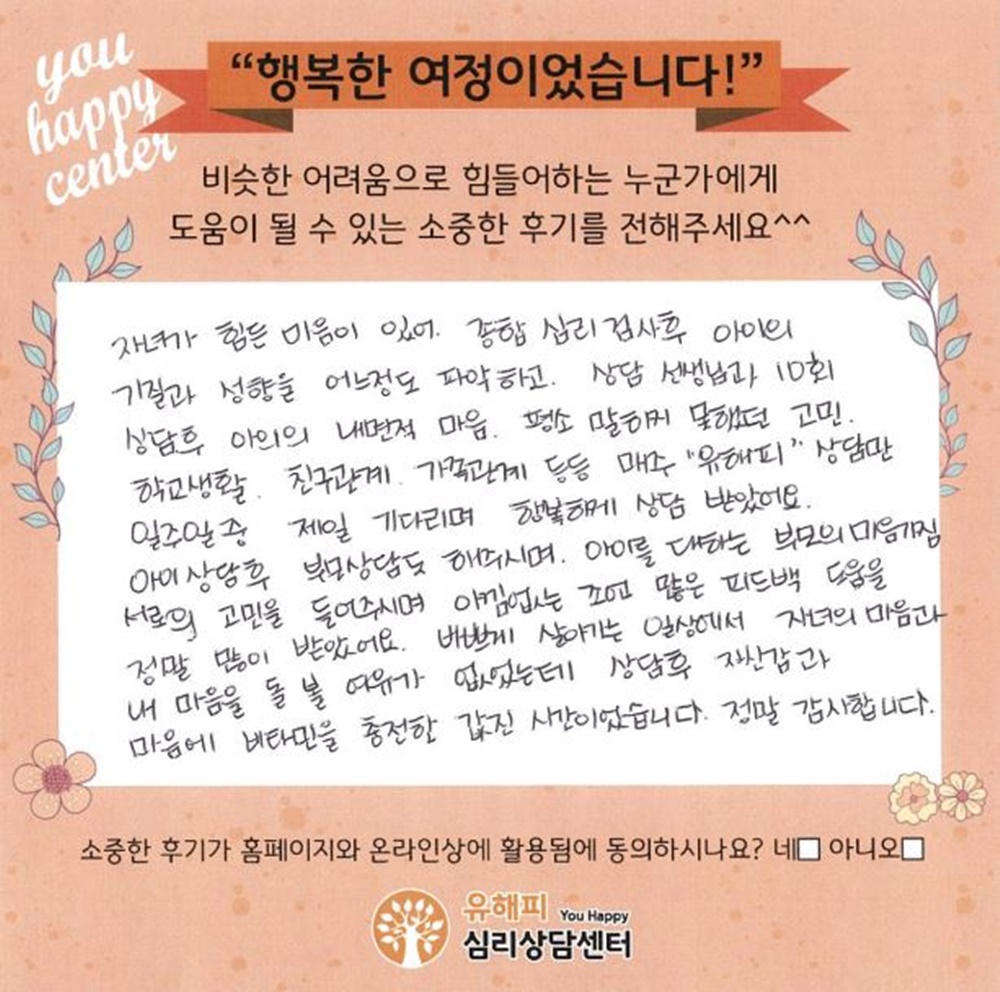 you
happy
center
“행복한 여정이었습니다!”
비슷한 어려움으로 힘들어하는 누군가에게
도움이 될 수 있는 소중한 후기를 전해주세요^^
자녀가 힘든 마음이 있어. 종합 심리검사후 아이의
기질과 성향을 어느정도 파악하고. 상담 선생님과 10회
상담후 아이의 내면적 마음. 평소 말하지 못했던 고민.
학교생활. 친구관계. 가족관계 등등 매주 "유해피" 상담만
일주일중 제일 기다리며 행복하게 상담 받았어요.
아이상담후 부모상담도 해주시며. 아이를 대하는 부모의 마음가짐
서로의 고민을 들어주시며 아낌없는 조언 많은 피드백 도움을
정말 많이 받았어요. 바쁘게 살아가는 일상에서 자녀의 마음과
내 마음을 돌 볼 여유가 없었는데 상담후 자신감과
마음에 비타민을 충전한 값진 시간이었습니다. 정말 감사합니다.
소중한 후기가 홈페이지와 온라인상에 활용됨에 동의하시나요? 네□ 아니오□
유해피 You Happy
심리상담센터